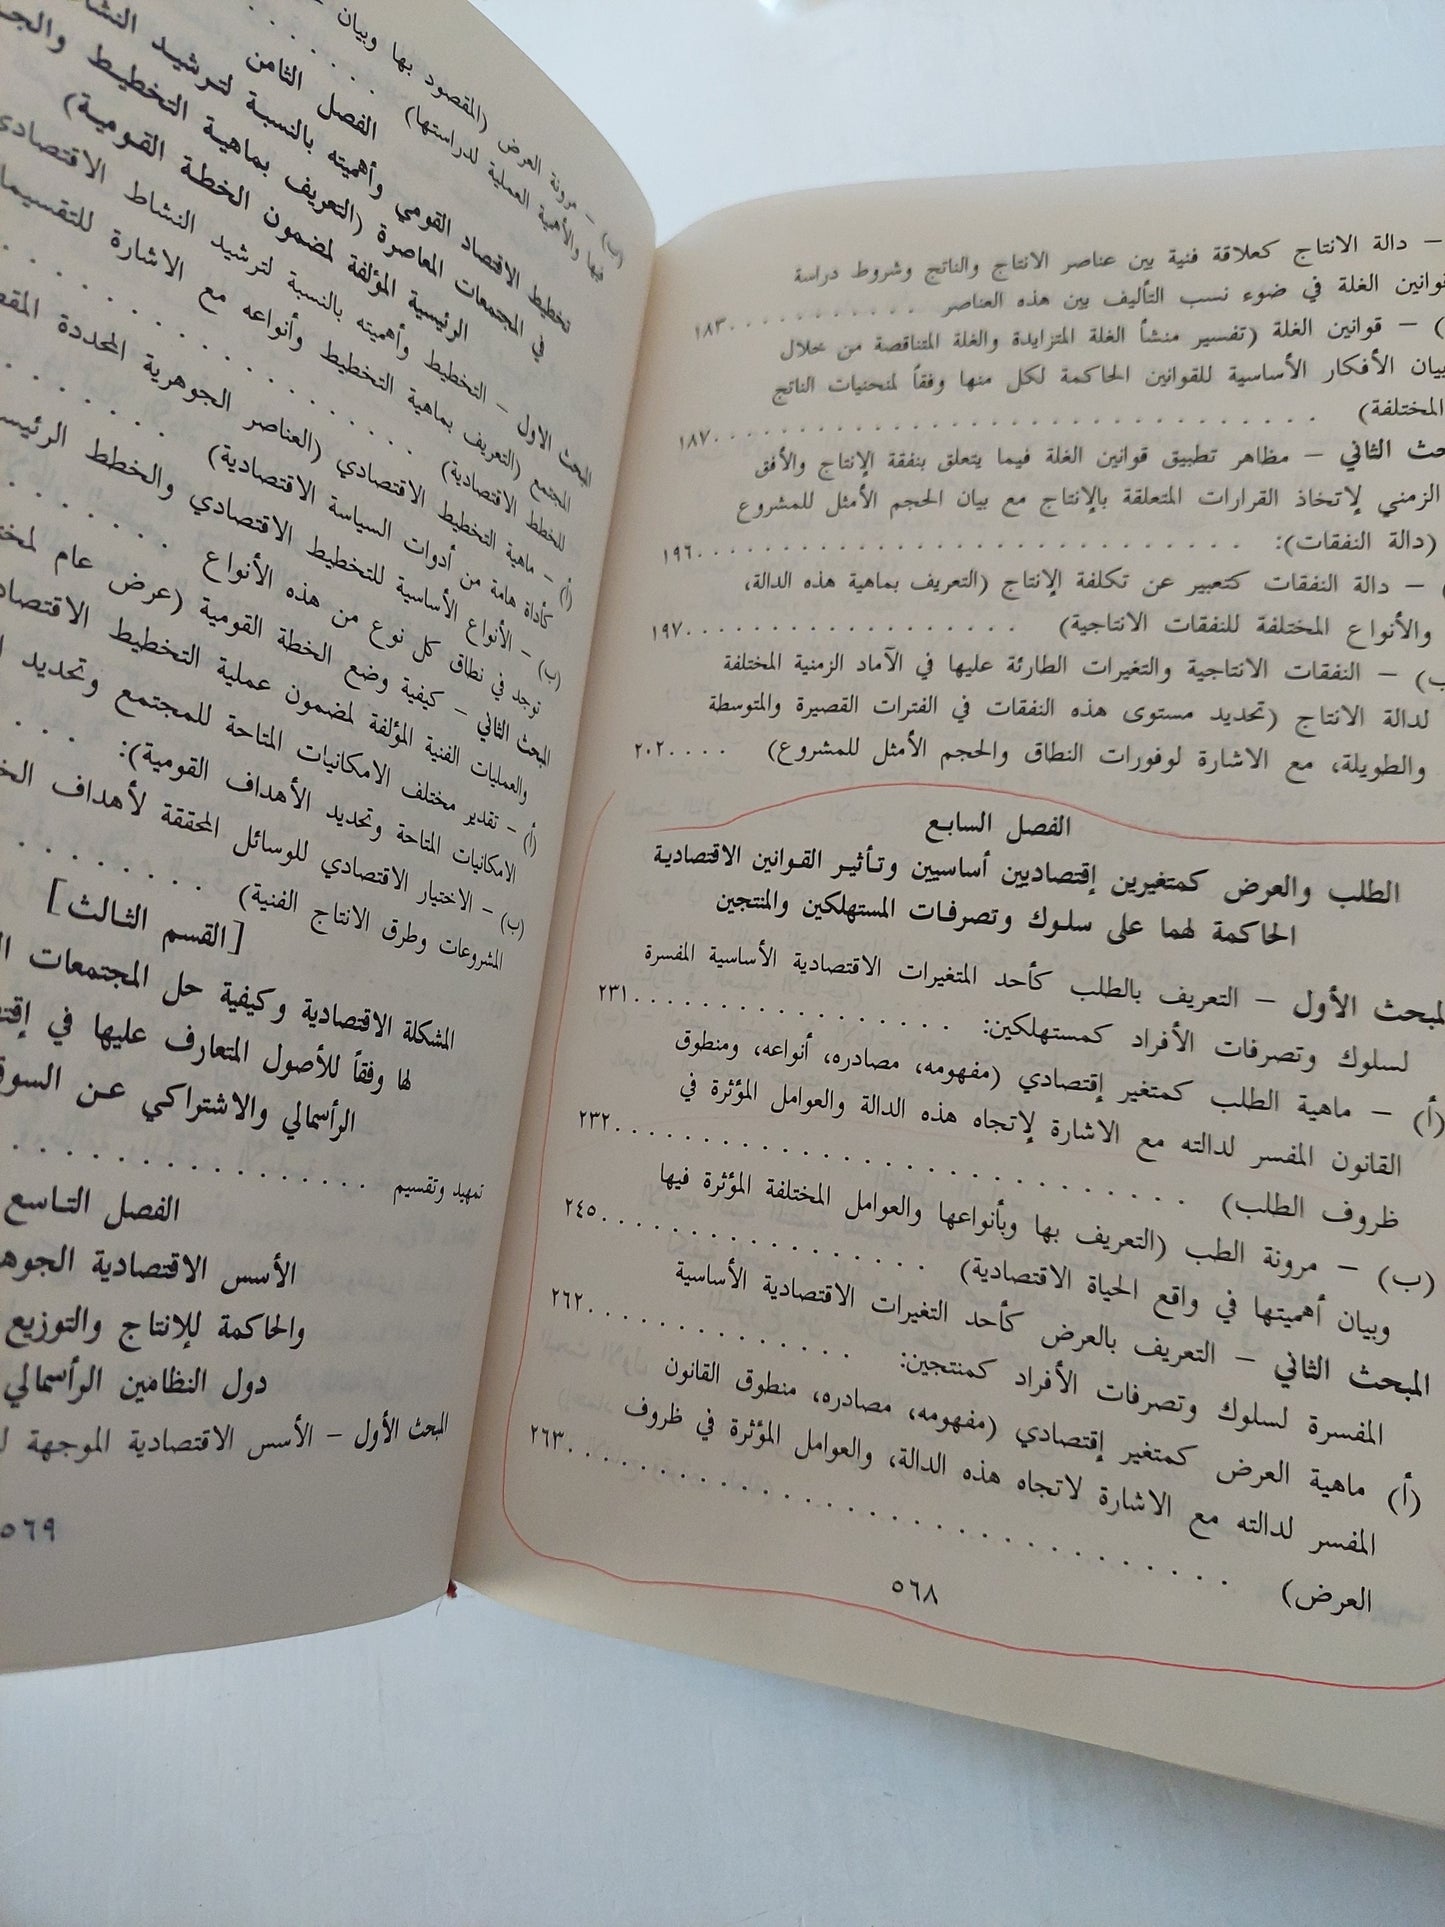 – دالة الانتاج كعلاقة فنية بين عناصر الانتاج والناتج وشروط دراسة
قوانين الغلة في ضوء نسب التأليف بين هذه العناصر . . . . . . . . . . . ١٨٣
) – قوانين الغلة (تفسير منشأ الغلة المتزايدة والغلة المتناقصة من خلال
بيان الأفكار الأساسية للقوانين الحاكمة لكل منها وفقاً لمنحنيات الناتج
المختلفة) . . . . . . . . . . . . . . . . . . . . . . . . . . . . ١٨٧
حث الثاني – مظاهر تطبيق قوانين الغلة فيما يتعلق بنفقة الإنتاج والأفق
الزمني لإتخاذ القرارات المتعلقة بالإنتاج مع بيان الحجم الأمثل للمشروع
(دالة النفقات): . . . . . . . . . . . . . . . . . . . . . . . . . ١٩٦
) – دالة النفقات كتعبير عن تكلفة الإنتاج (التعريف بماهية هذه الدالة،
والأنواع المختلفة للنفقات الانتاجية) . . . . . . . . . . . . . . . . . ١٩٧
ب) – النفقات الانتاجية والتغيرات الطارئة عليها في الآماد الزمنية المختلفة
لدالة الانتاج (تحديد مستوى هذه النفقات في الفترات القصيرة والمتوسطة
والطويلة، مع الاشارة لوفورات النطاق والحجم الأمثل للمشروع) . . . . ٢٠٢
الفصل السابع
الطلب والعرض كمتغيرين إقتصاديين أساسيين وتأثير القوانين الاقتصادية
الحاكمة لهما على سلوك وتصرفات المستهلكين والمنتجين
لمبحث الأول – التعريف بالطلب كأحد المتغيرات الاقتصادية الأساسية المفسرة
لسلوك وتصرفات الأفراد كمستهلكين: . . . . . . . . . . . . . . . ٢٣١
(أ) – ماهية الطلب كمتغير إقتصادي (مفهومه، مصادره، أنواعه، ومنطوق
القانون المفسر لدالته مع الاشارة لإتجاه هذه الدالة والعوامل المؤثرة في
ظروف الطلب) . . . . . . . . . . . . . . . . . . . . . . . . . ٢٣٢
(ب) – مرونة الطب (التعريف بها وبأنواعها والعوامل المختلفة المؤثرة فيها
وبيان أهميتها في واقع الحياة الاقتصادية) . . . . . . . . . . . . . . ٢٤٥
المبحث الثاني – التعريف بالعرض كأحد التغيرات الاقتصادية الأساسية
المفسرة لسلوك وتصرفات الأفراد كمنتجين: . . . . . . . . . . . . ٢٦٢
(أ) ماهية العرض كمتغير إقتصادي (مفهومه، مصادره، منطوق القانون
المفسر لدالته مع الاشارة لاتجاه هذه الدالة، والعوامل المؤثرة في ظروف
العرض) . . . . . . . . . . . . . . . . . . . . . . . . . . . ٢٦٣
٥٦٨
(ب) – مرونة العرض (المقصود بها وبيان
فيها والأهمية العملية لدراستها) . . . . . .
الفصل الثامن
تخطيط الاقتصاد القومي وأهميته بالنسبة لترشيد
في المجتمعات المعاصرة (التعريف بماهية التخطيط
الرئيسية المؤلفة لمضمون الخطة القومية)
المبحث الاول – التخطيط وأهميته بالنسبة لترشيد النشاط
المجتمع (التعريف بماهية التخطيط وأنواعه مع الاشارة
للخطط الاقتصادية) . . . . . . . . . . .
(أ) – ماهية التخطيط الاقتصادي (العناصر الجوهرية المحددة
كأداة هامة من أدوات السياسة الاقتصادية) . . . . .
(ب) – الأنواع الأساسية للتخطيط الاقتصادي والخطط
توجد في نطاق كل نوع من هذه الأنواع . . . . .
المبحث الثاني – كيفية وضع الخطة القومية (عرض عام
والعمليات الفنية المؤلفة لمضمون عملية التخطيط
(أ) – تقدير مختلف الامكانيات المتاحة للمجتمع وتحديد
الامكانيات المتاحة وتحديد الأهداف القومية): . . .
(ب) – الاختيار الاقتصادي للوسائل المحققة لأهداف
المشروعات وطرق الانتاج الفنية) . . . . . . .
[القسم الثالث]
المشكلة الاقتصادية وكيفية حل المجتمعات
لها وفقاً للأصول المتعارف عليها في
الرأسمالي والاشتراكي عن
تمهيد وتقسيم . . . . . . . . . . . . . .
الفصل التاسع
الأسس الاقتصادية
والحاكمة للإنتاج والتوزيع
دول النظامين الرأسمالي
المبحث الأول – الأسس الاقتصادية الموجهة
٥٦٩